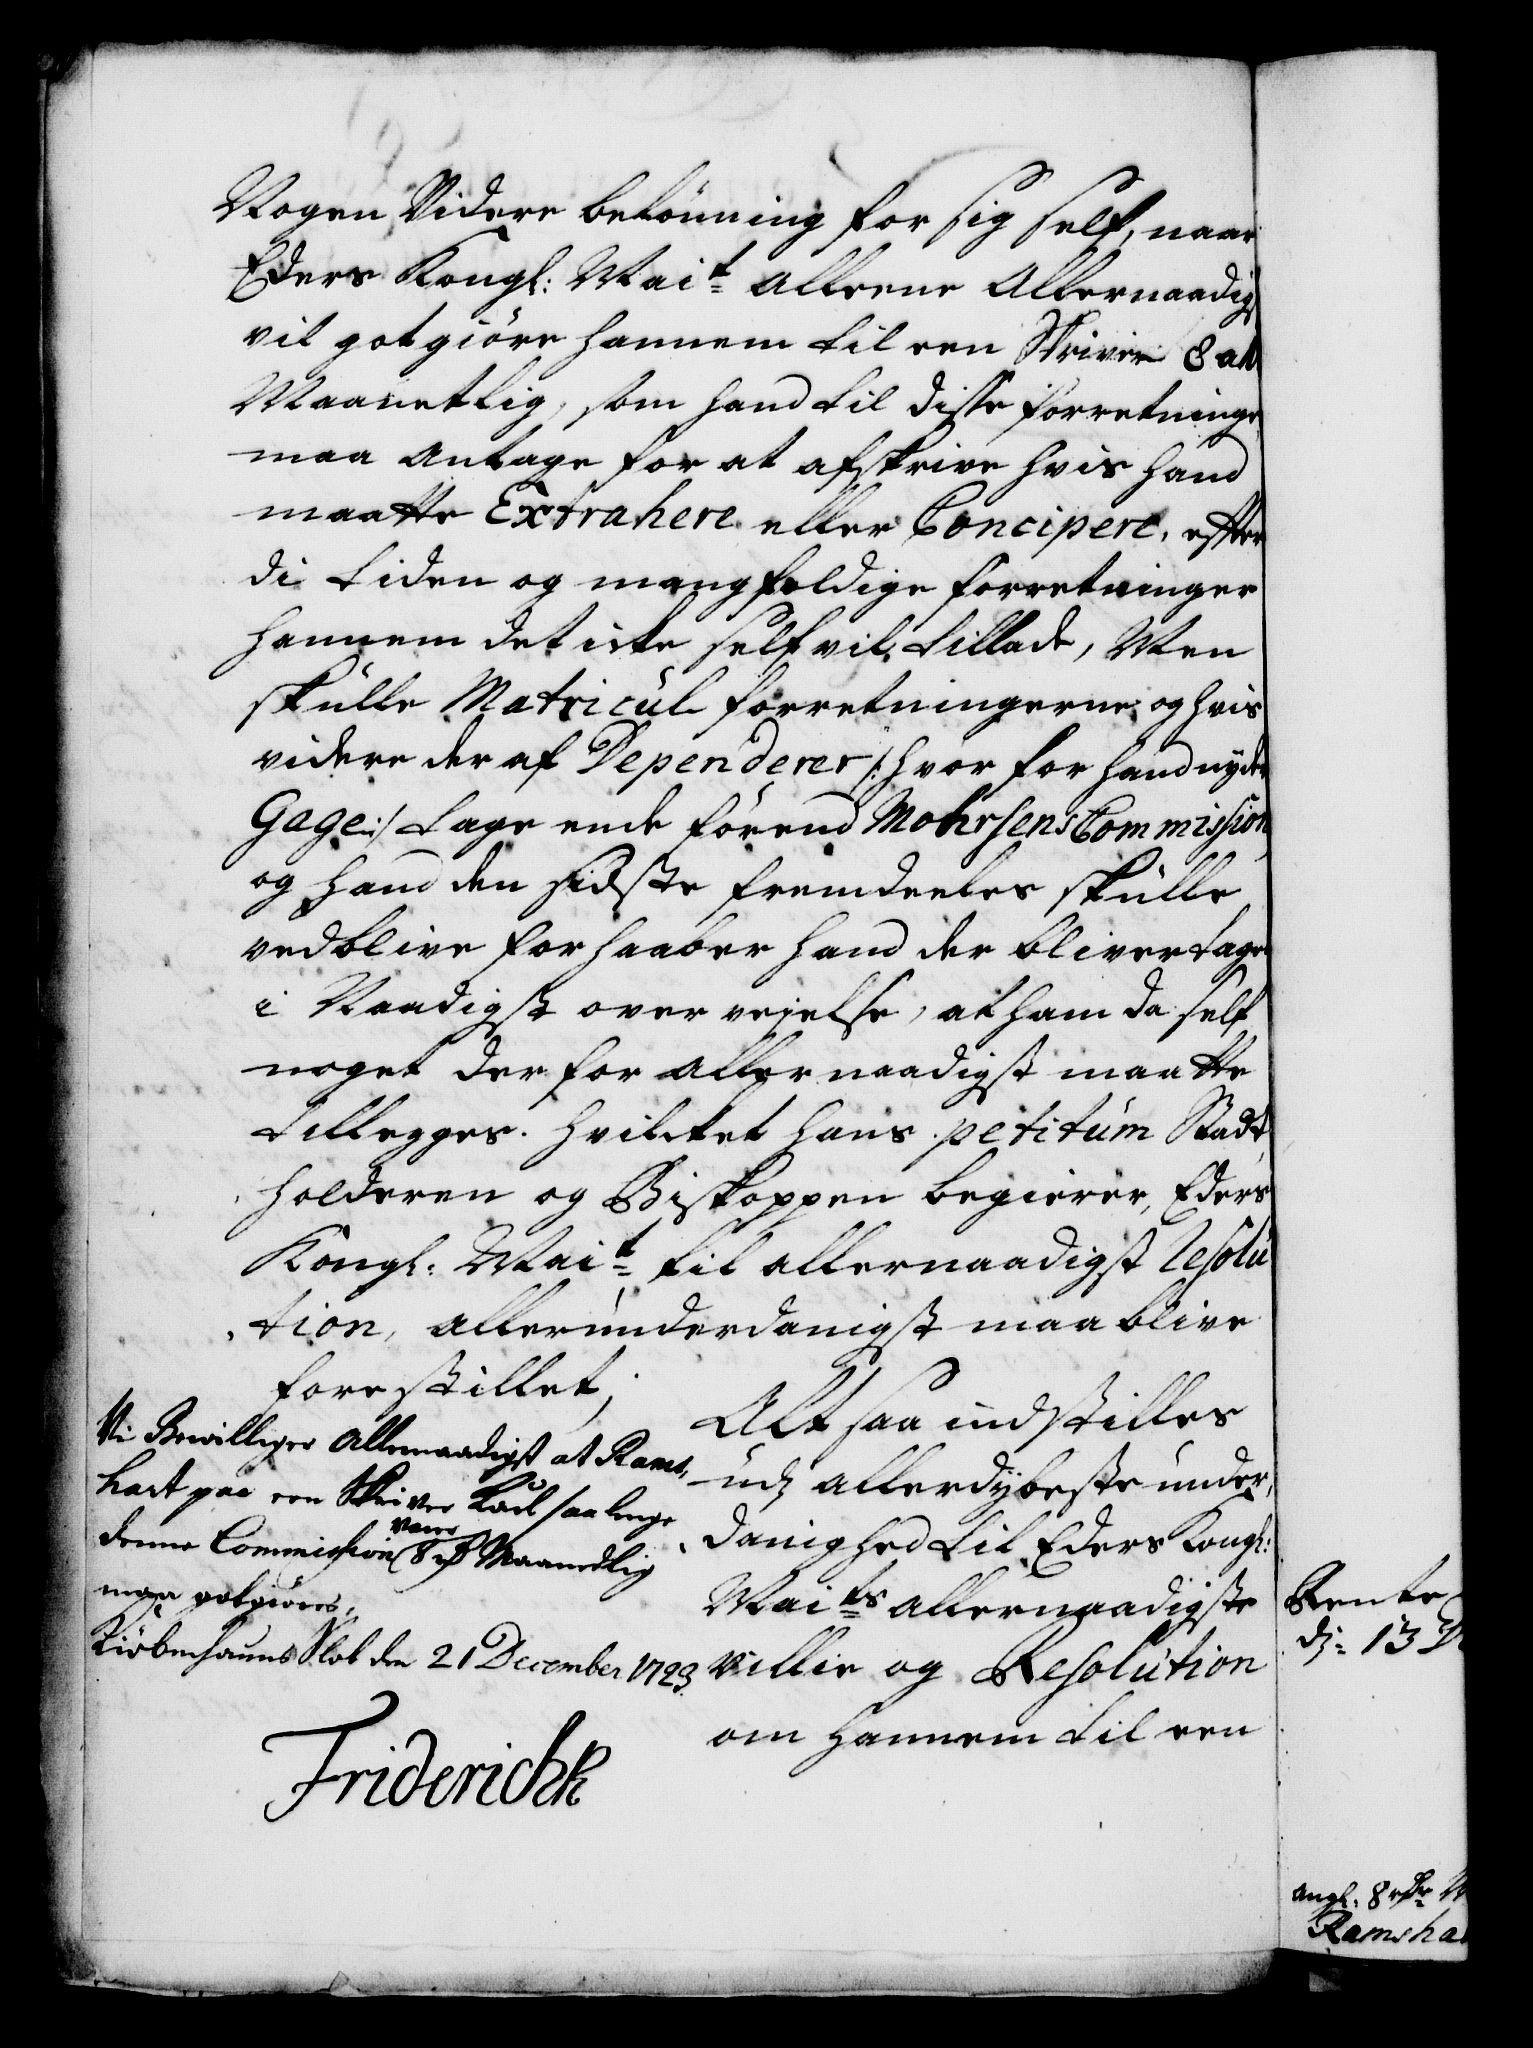 Nogen Videre belönning for sig self, naar
Eders Kongl: Mait alleene Allernaadigst
vil gotgiöre hannem til een Skriver 8
Maanetlig, som hand til disse forretninger
maa antage for at afskrive hvis hand
maatte Extrahere eller Concipere, efter
di tiden og mangfoldige forretninger
hannem det icke self vil tillade, Men
skulle Matricul forretningerne og hvis
videre der af Dependerer /: hvor for hand nyder
Gage :/ tage ende förend Mohrsens Commission
og hand den sidste fremdeeles skulle
vedblive forhaaber hand der bliver tagen
i Naadigst overvejelse, at ham da self
noget der for allernaadigst maatte
tillegges. Hvilcket hans petitum Stadt
holderen og Biskoppen begierer, Eders
Kongl: Mait til allernaadigst Resolu
tion, allerunderdanigst maa blive
forestillet;
Alt saa indstilles
udj allerdybeste under
danighed til Eders Kongl:
Maits allernaadigste
Villie og Resolution
om hannem til een
Vi Bevilliger Allernaadigst at Rams
hart paa een Skriver Karl saa lenge
denne Commission varer 8 rd Maanedlig
maa gotgiöres,
Kiöbenhauns Slot den 21 December 1723
Friderich R
Rente
dj: 13 D
angl. 8 rdr M
Ramsha